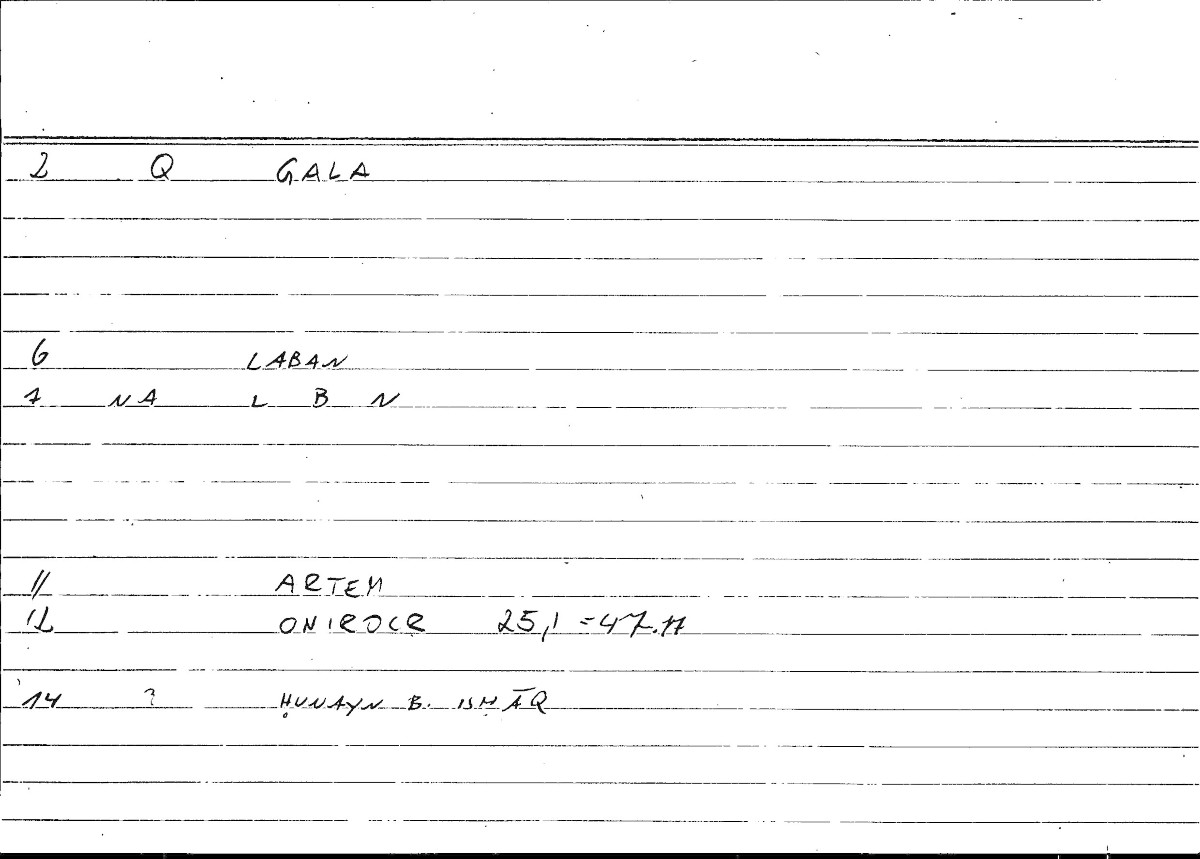 2 Q GALA
6 LABAN
7 NA L B N
11 ARTEM
12 ONIROCR 25,1 = 47.17
14 ? ḤUNAYN B. ISḤĀQ